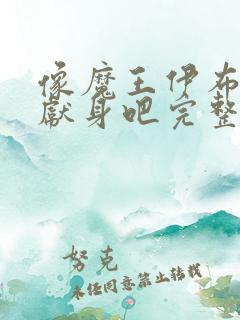 像魔王伊布
献身吧完整
努克
未经同意禁止转载